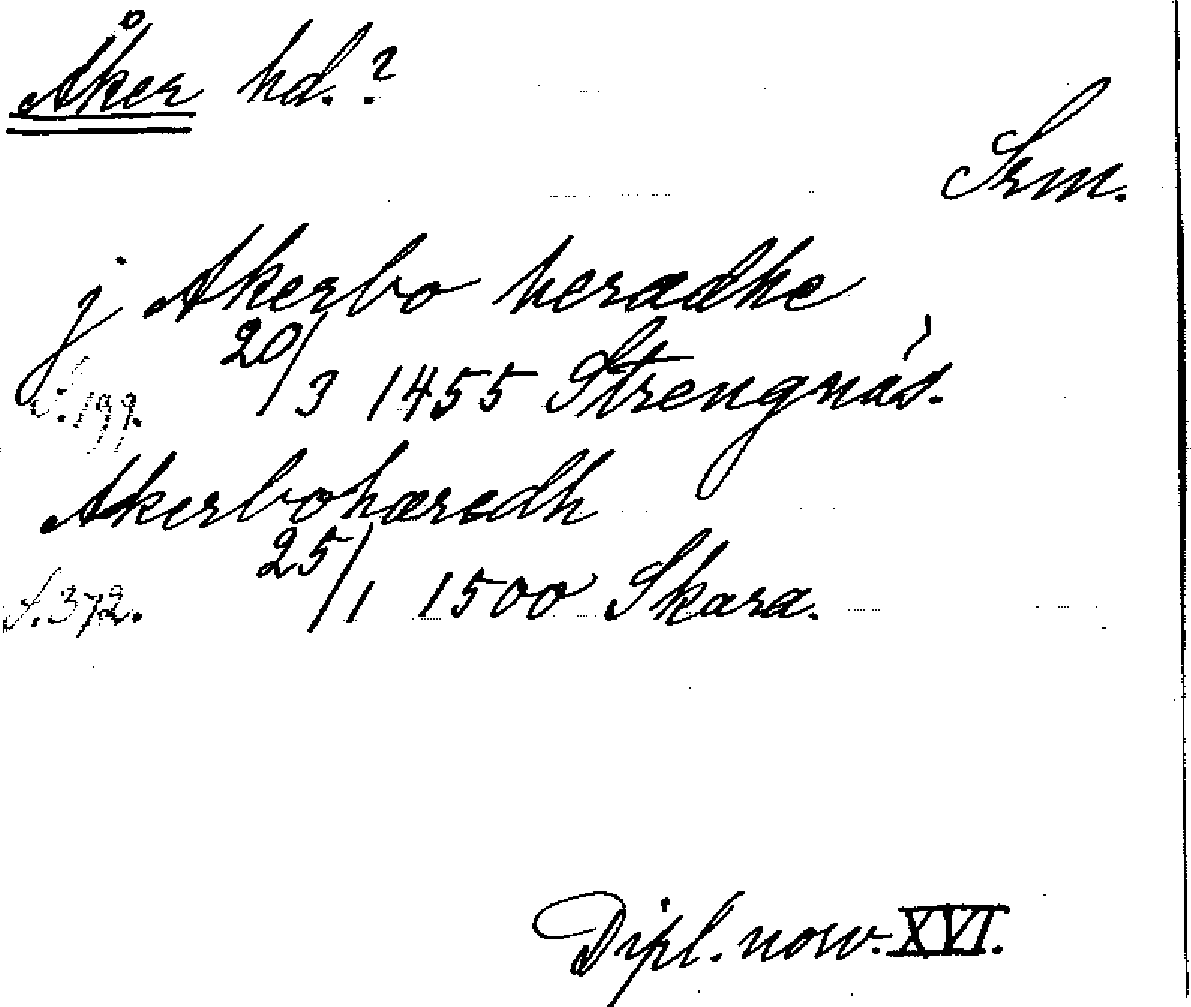 Åker hd.?
Srm.
j Akerbo heradhe
S. 199. 20/3 1455 Strengnäs.
Akerbohæredh
S. 372. 25/1 1500 Skara.
Dipl. norv. XVI.